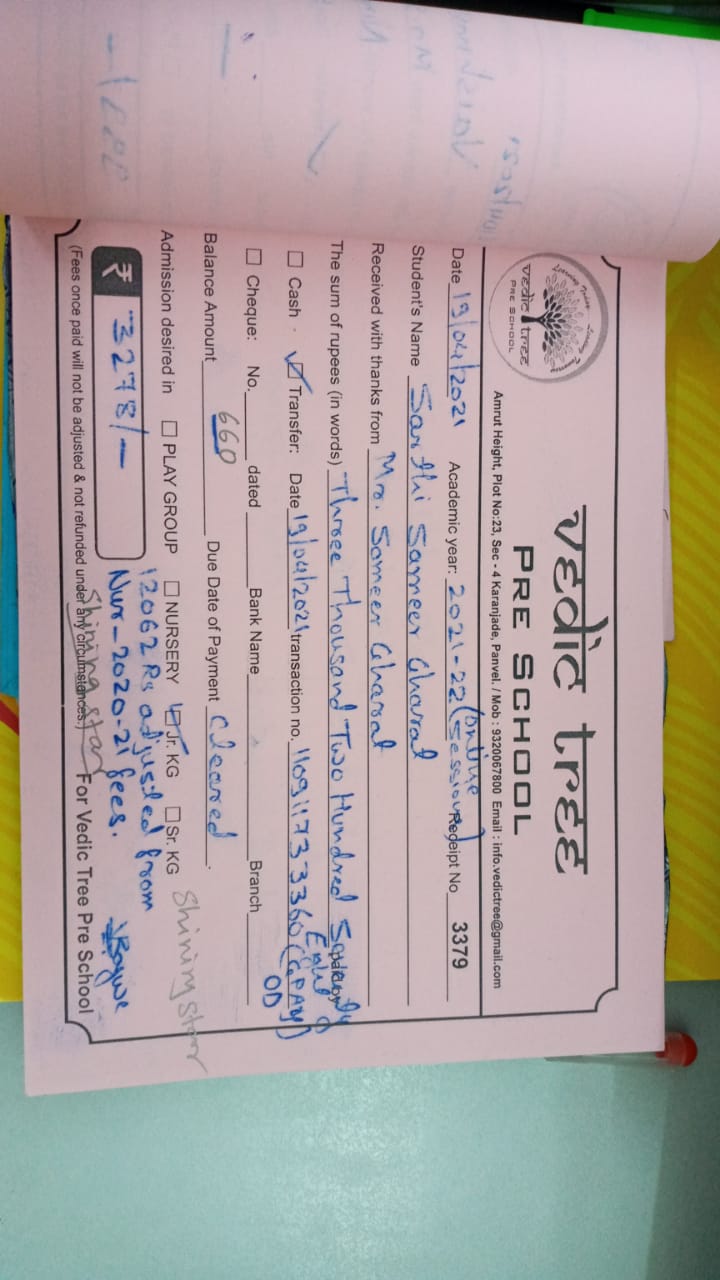 vedic tree
PRE SCHOOL
Learning Today Leading Tomorrow
vedic tree
PRE SCHOOL
Amrut Height, Plot No:23, Sec - 4 Karanjade, Panvel. / Mob : 9320067800 Email : info.vedictree@gmail.com
Date 19/04/2021 Academic year: 2021-22 (Online Session) Receipt No 3379
Student's Name Sarthi Sameer Gharat
Received with thanks from Mr. Sameer Gharat
The sum of rupees (in words) Three Thousand Two Hundred Seventy Eight
Cash Transfer: Date 19/04/2021 transaction no. 110911733360 (G PAY) OD
Cheque: No. dated Bank Name Branch
Balance Amount 660 Due Date of Payment Cleared.
Admission desired in PLAY GROUP NURSERY Jr. KG Sr. KG Shining Star
₹ 3278/- 12062 Rs adjusted from
Nur-2020-21 fees.
Shining Star
(Fees once paid will not be adjusted & not refunded under any circumstances.) For Vedic Tree Pre School